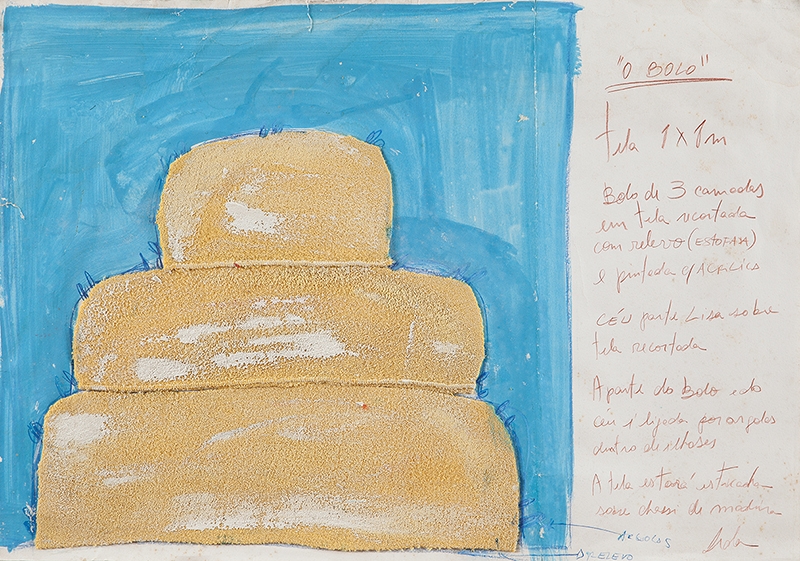 "O BOLO"
tela 1 X 1m
Bolo de 3 camadas
em tela recortada
com relevo (ESTOFADA)
e pintada c/ acrilica
CÉU parte Lisa sobre
tela recortada
A parte do Bolo e do
céu é ligada por argolas
dentro de ilhoses
A tela estará esticada
sobre chassi de madeira
ARGOLAS
RELEVO